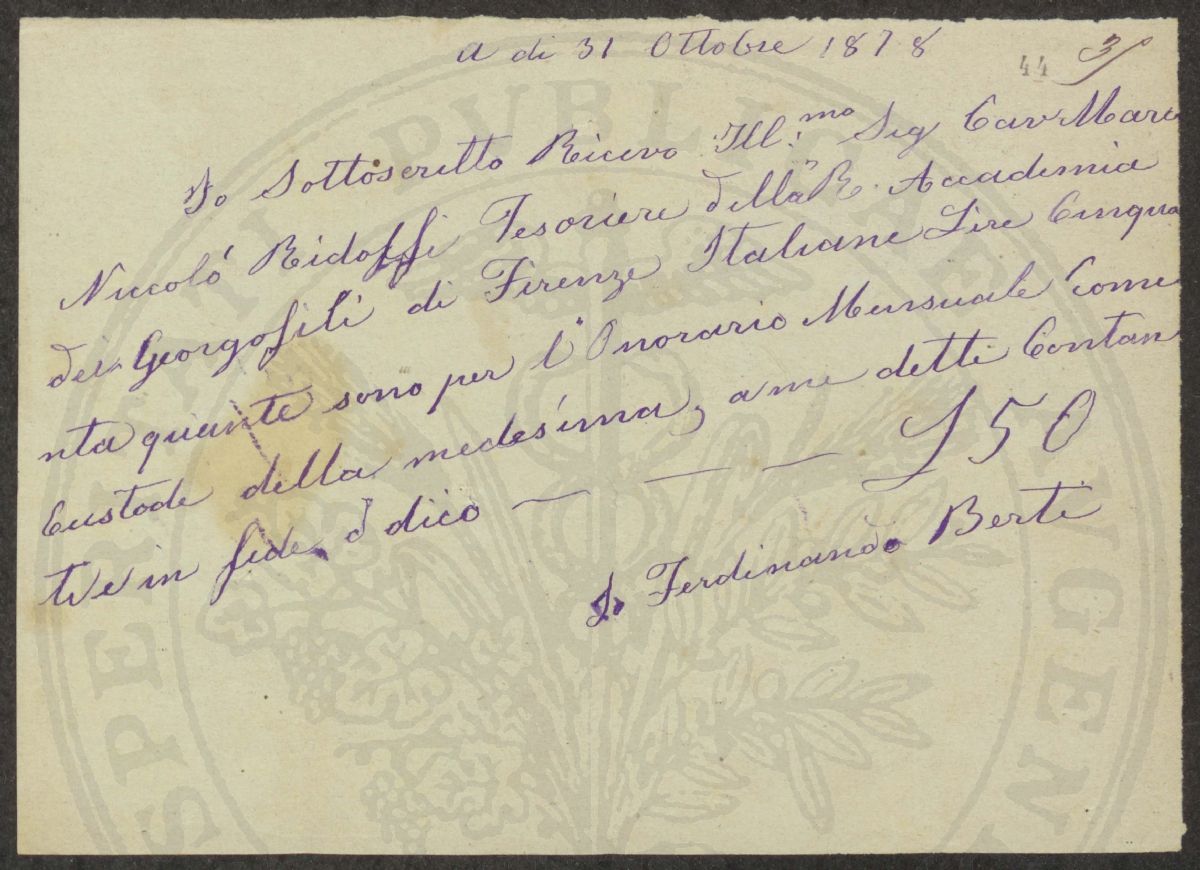 a di 31 Ottobre 1878
44 31
Io Sottoscritto Ricevo Ill.mo Sig Cav Marc
Niccoló Ridolfi Tesoriere della R. Accademia
dei Georgofili di Firenze Italiane Lire Cinqua
nta quante sono per l'Onorario Mensuale Come
Custode della medesima, a me detti Contan
ti e in fede dico — — — £50
Io Ferdinando Berti